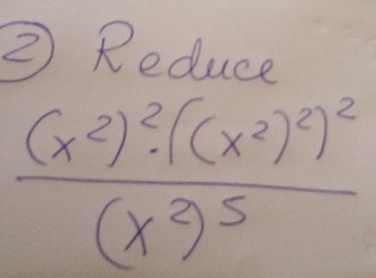 ② Reduce
(x²)².((x²)²)²
(x²)⁵